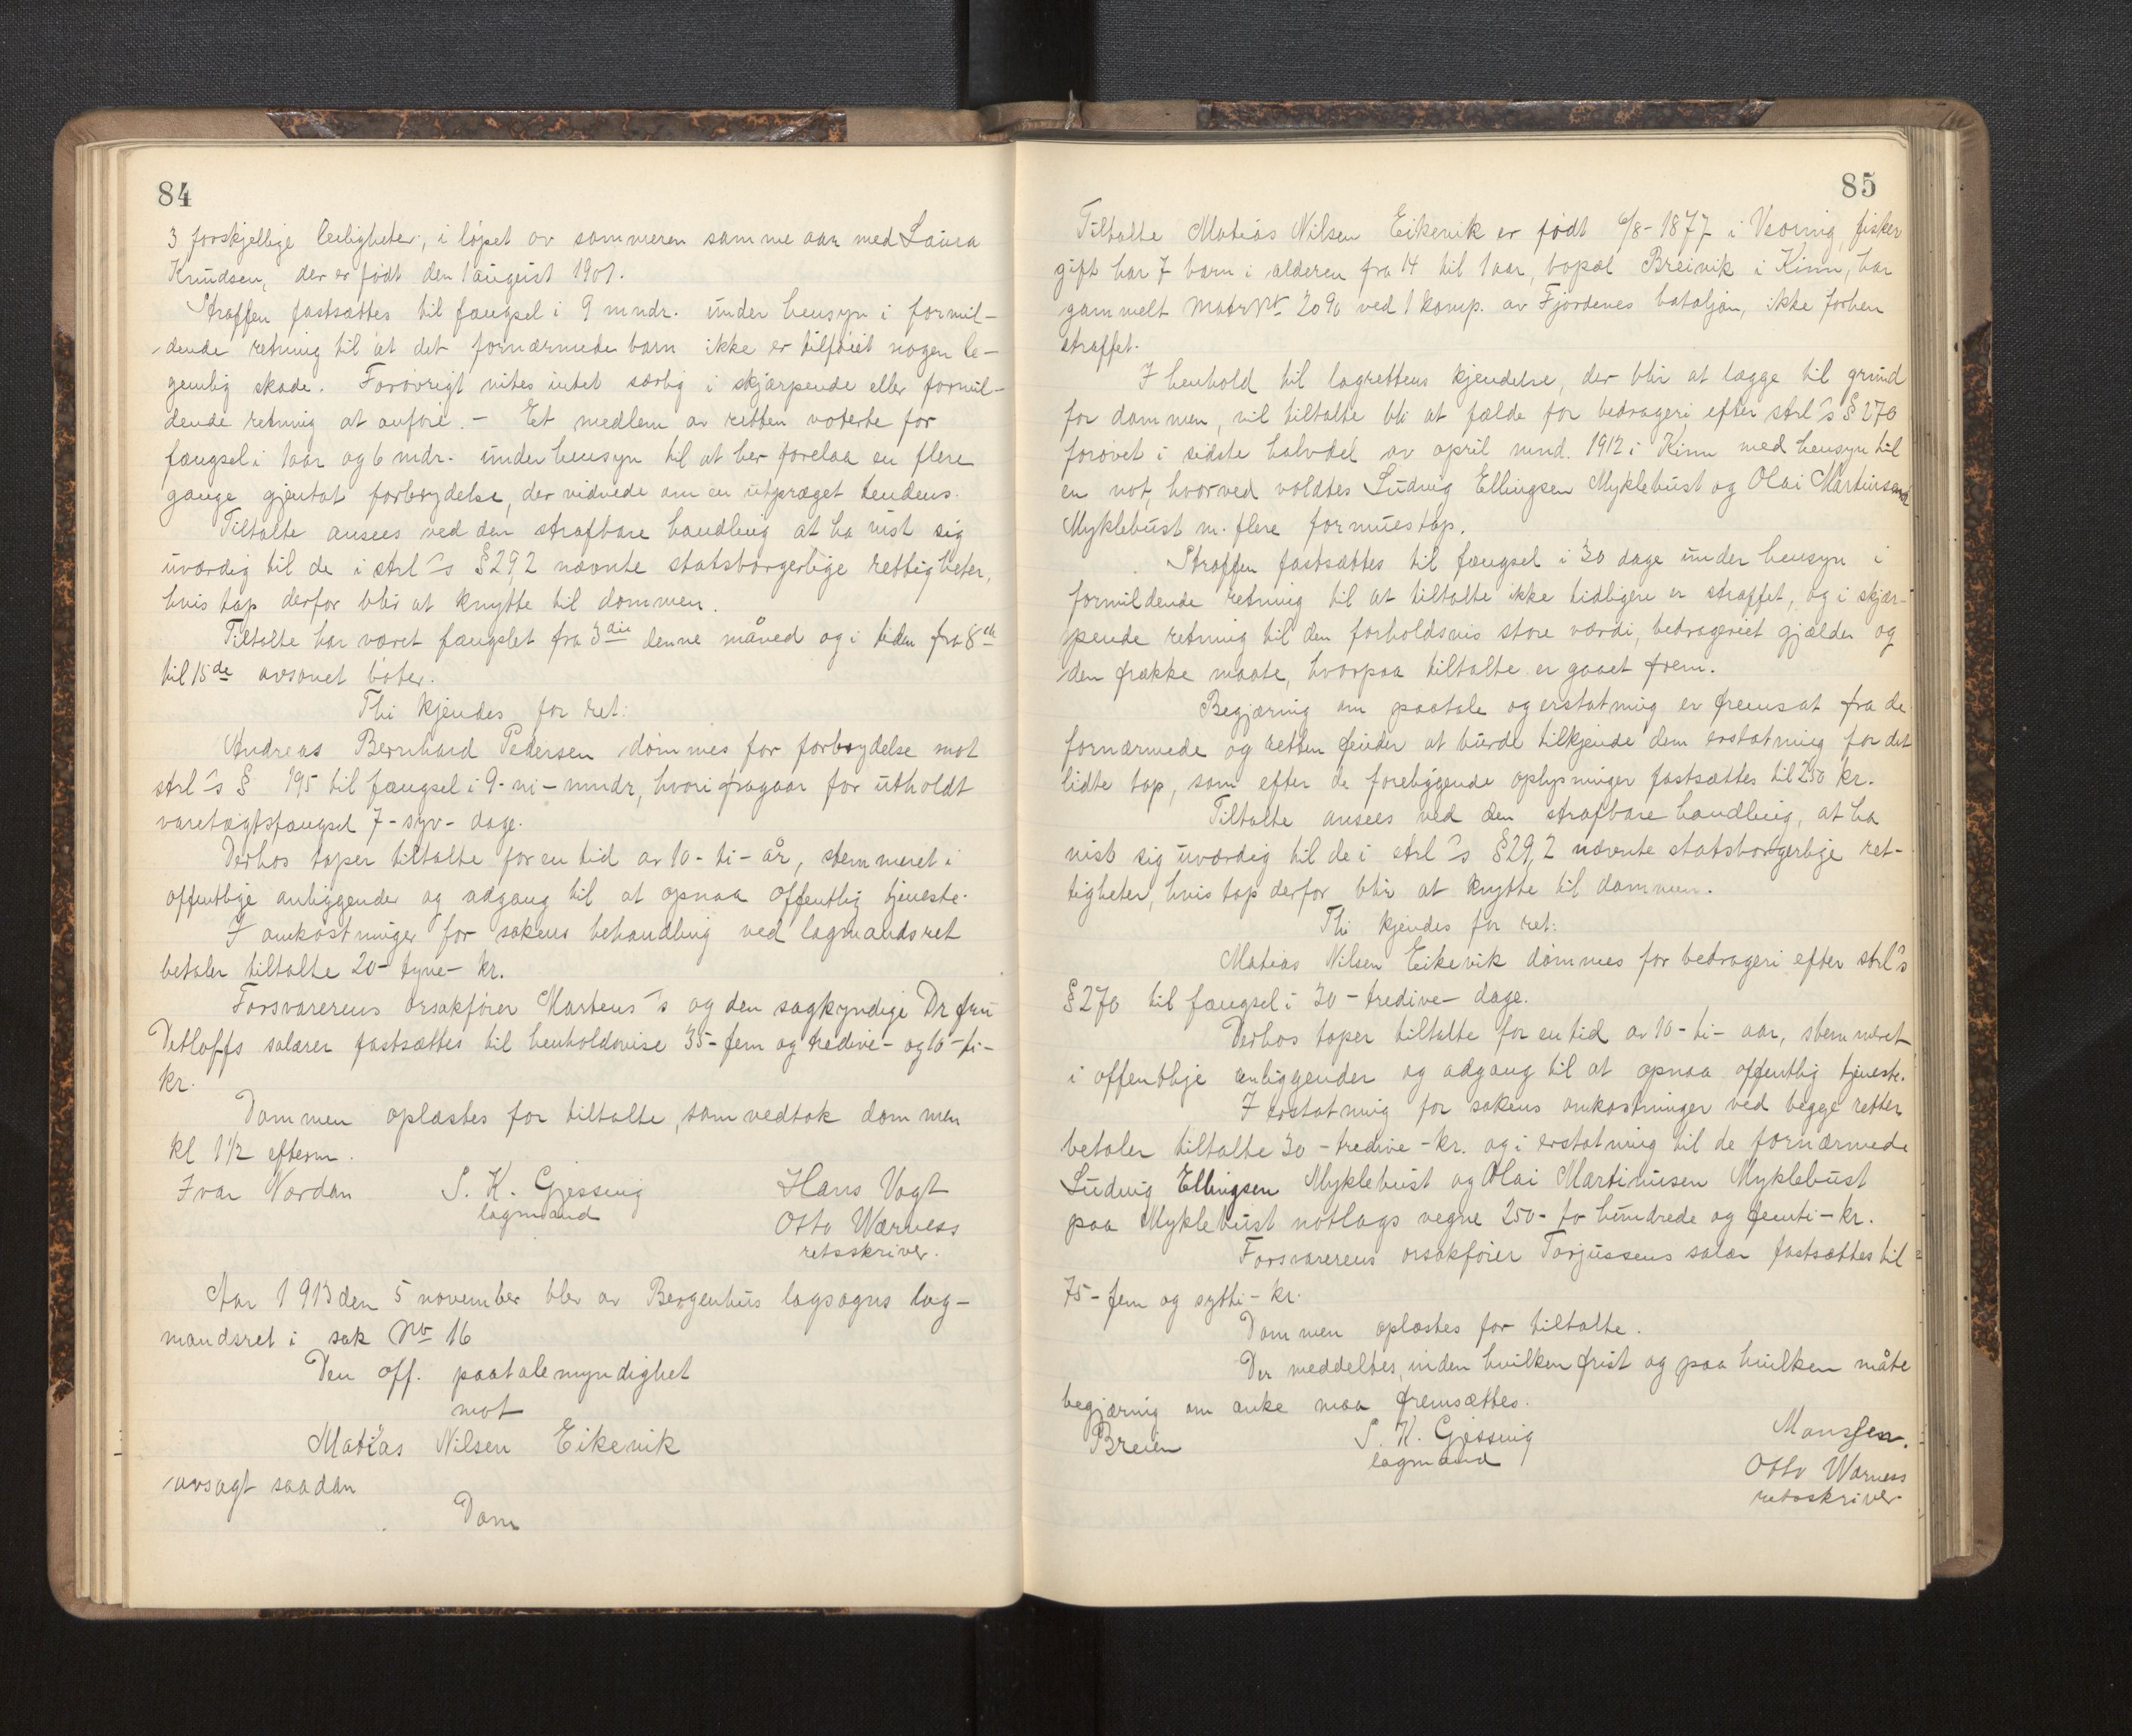 84
3 forskjellige leiligheter, i løpet av sommeren samme aar med Laura
Knudsen, der er født den 1 august 1901.
Straffen fastsættes til fængsel i 9 mndr. under hensyn i formil-
dende retning til at det fornærmede barn ikke er tilføiet nogen le-
gemlig skade. Forøvrigt vites intet særlig i skjærpende eller formil-
dende retning at anføre. - Et medlem av retten voterte for
fængsel i 1 aar og 6 mdr. under hensyn til at her forelaa en flere
gange gjentat forbrydelse, der vidnede om en utpræget tendens.
Tiltalte ansees ved den strafbare handling at ha vist sig
uværdig til de i strl's § 29,2 nævnte statsborgerlige rettigheter,
hvis tap derfor blir at knytte til dommen.
Tiltalte har været fængslet fra 3die denne måned og i tiden fra 8de
til 15de avsonet bøter.
Thi kjendes for ret:
Andreas Bernhard Pedersen dømmes for forbrydelse mot
strl's § 195 til fængsel i 9-ni-mndr, hvori fragaar for utholdt
varetægtsfængsel 7-syv-dage.
Derhos taper tiltalte for en tid av 10-ti-år, stemmeret i
offentlige anliggender og adgang til at opnaa offentlig tjeneste.
I omkostninger for sakens behandling ved lagmandsret
betaler tiltalte 20-tyve-kr.
Forsvarerens orsakfører Martens's og den sagkyndige Dr fru
Detloffs salærer fastsættes til henholdsvise 35-fem og tredive- og 10-ti-
kr.
Dommen oplæstes for tiltalte, som vedtok dommen
kl 1½ efterm.
Ivar Nordan S. K. Gjessing Hans Vogt
lagmand Otto Wærness
retsskriver.
Aar 1913 den 5 november blev av Bergenhus lagsogns lag-
mandsret i sak No 16
Den off. paatalemyndighet
mot
Matias Nilsen Eikevik
avsagt saadan
Dom
85
Tiltalte Matias Nilsen Eikevik er født 6/8-1877 i Vevring, fisker
gift har 7 barn i alderen fra 14 til 1 aar, bopæl Breivik i Kinn, har
gammelt matr No 20% ved 1 komp. av Fjordenes bataljon, ikke forhen
straffet.
I henhold til lagrettens kjendelse, der blir at lægge til grund
for dommen, vil tiltalte bli at fælde for bedrageri efter strl's § 270
forøvet i sidste halvdel av april mnd. 1912 i Kinn med hensyn til
en not, hvorved voldtes Ludvig Ellingsen Myklebust og Olai Martinsen
Myklebust m. flere formuestap.
Straffen fastsættes til fængsel i 30 dage under hensyn i
formildende retning til at tiltalte ikke tidligere er straffet, og i skjær-
pende retning til den forholdsvis store værdi, bedrageriet gjælder og
den frække maate, hvorpaa tiltalte er gaaet frem.
Begjæring om paatale og erstatning er fremsat fra de
fornærmede og retten finder at burde tilkjende dem erstatning for det
lidte tap, som efter de foreliggende oplysninger fastsættes til 250 kr.
Tiltalte ansees ved den strafbare handling, at ha
vist sig uværdig til de i strl's § 29,2 nævnte statsborgerlige ret-
tigheter, hvis tap derfor blir at knytte til dommen.
Thi kjendes for ret:
Matias Nilsen Eikevik dømmes for bedrageri efter strl's
§ 270 til fængsel i 30-tredive-dage.
Derhos taper tiltalte for en tid av 10-ti-aar, stemmeret
i offentlige anliggender og adgang til at opnaa offentlig tjeneste.
I erstatning for sakens omkostninger ved begge retter
betaler tiltalte 30-tredive-kr. og i erstatning til de fornærmede
Ludvig Ellingsen Myklebust og Olai Martinusen Myklebust
paa Myklebust notlags vegne 250-to hundrede og femti-kr.
Forsvarerens orsakfører Torjussens salær fastsættes til
75-fem og sytti-kr.
Dommen oplæstes for tiltalte.
Der meddeltes, inden hvilken frist og paa hvilken måte
begjæring om anke maa fremsættes.
Breien S. K. Gjessing Monssen.
lagmand Otto Wærness
retsskriver.